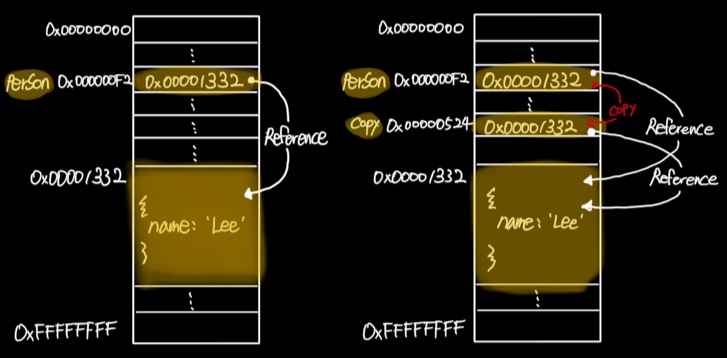 0x00000000
Person 0x000000F2 0x00001332
Reference
0x00001332
{
name: 'Lee'
}
0xFFFFFFFF
0x00000000
Person 0x000000F2 0x00001332
copy
Copy 0x00000524 0x00001332
Reference
Reference
0x00001332
{
name: 'Lee'
}
0xFFFFFFFF